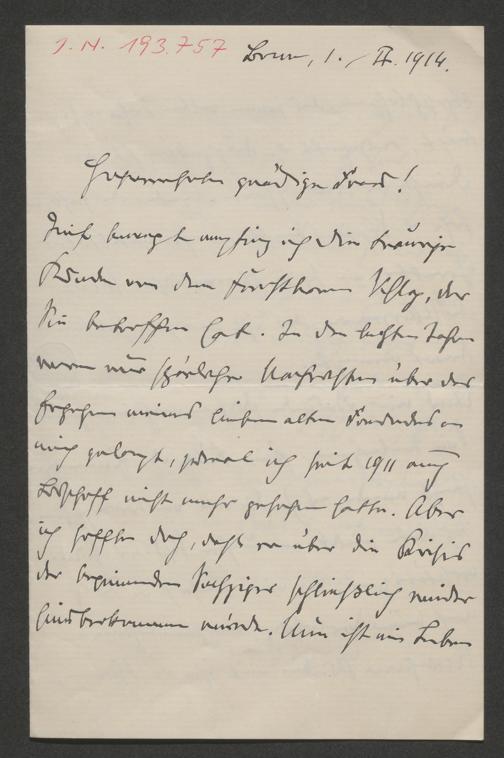 J. N. 193.757
Bonn, 1. / II. 1914.
Hochverehrte gnädige Frau!
Tief bewegt empfing ich die traurige
Kunde von dem furchtbaren Schlag, der
Sie betroffen hat. In den letzten Jahren
waren nur spärliche Nachrichten über das
Ergehen meines lieben alten Freundes an
mich gelangt, zumal ich seit 1911 auch
nicht mehr gesehen hatte. Aber
ich hoffte doch, daß er über die Krisis
der beginnenden Sechziger schließlich wieder
hinüberkommen würde. Nun ist ein Leben